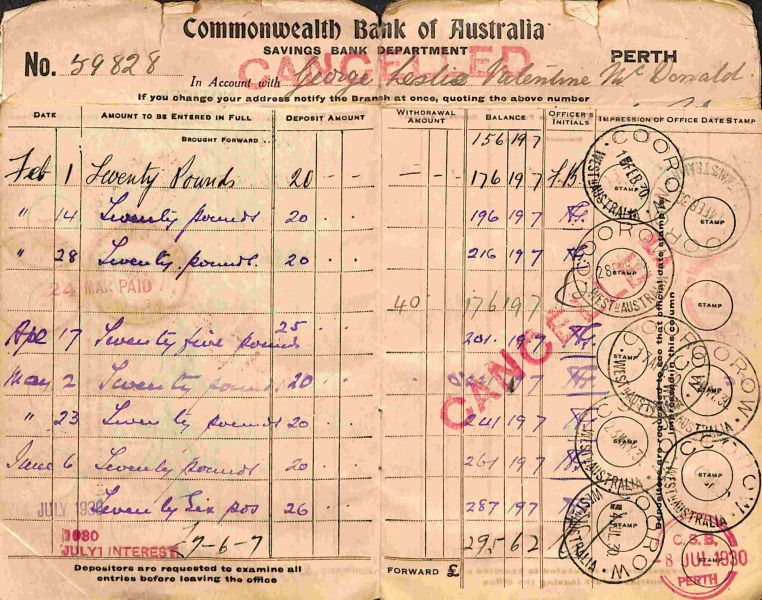 Commonwealth Bank of Australia
SAVINGS BANK DEPARTMENT PERTH
No. 59828 CANCELLED
In Account with George Leslie Valentine McDonald
If you change your address notify the Branch at once, quoting the above number
DATE AMOUNT TO BE ENTERED IN FULL DEPOSIT AMOUNT WITHDRAWAL AMOUNT BALANCE OFFICER'S INITIALS IMPRESSION OF OFFICE DATE STAMP
BROUGHT FORWARD 156 19 7
Feb 1 Twenty Pounds 20 -- -- 176 19 7 F.B.
" 14 Twenty pounds 20 196 19 7
" 28 Twenty pounds. 20 216 19 7
24 MAR PAID 40 176 19 7
Ape 17 Twenty five pounds 25 201 19 7
May 2 Twenty pounds 20 19 7
" 23 Twenty pounds 20 241 19 7
June 6 Twenty pounds 20 261 19 7
JULY 1930 Twenty Six pds 26 287 19 7
1930
JULY 1 INTEREST £7-6-7 295 6 2
Depositors are requested to examine all
entries before leaving the office
FORWARD £
CANCELLED
Depositors are requested to see that official date stamp is
impressed in this column
COOROW
WEST AUSTRALIA
STAMP
C.S.B.
8 JUL 1930
PERTH